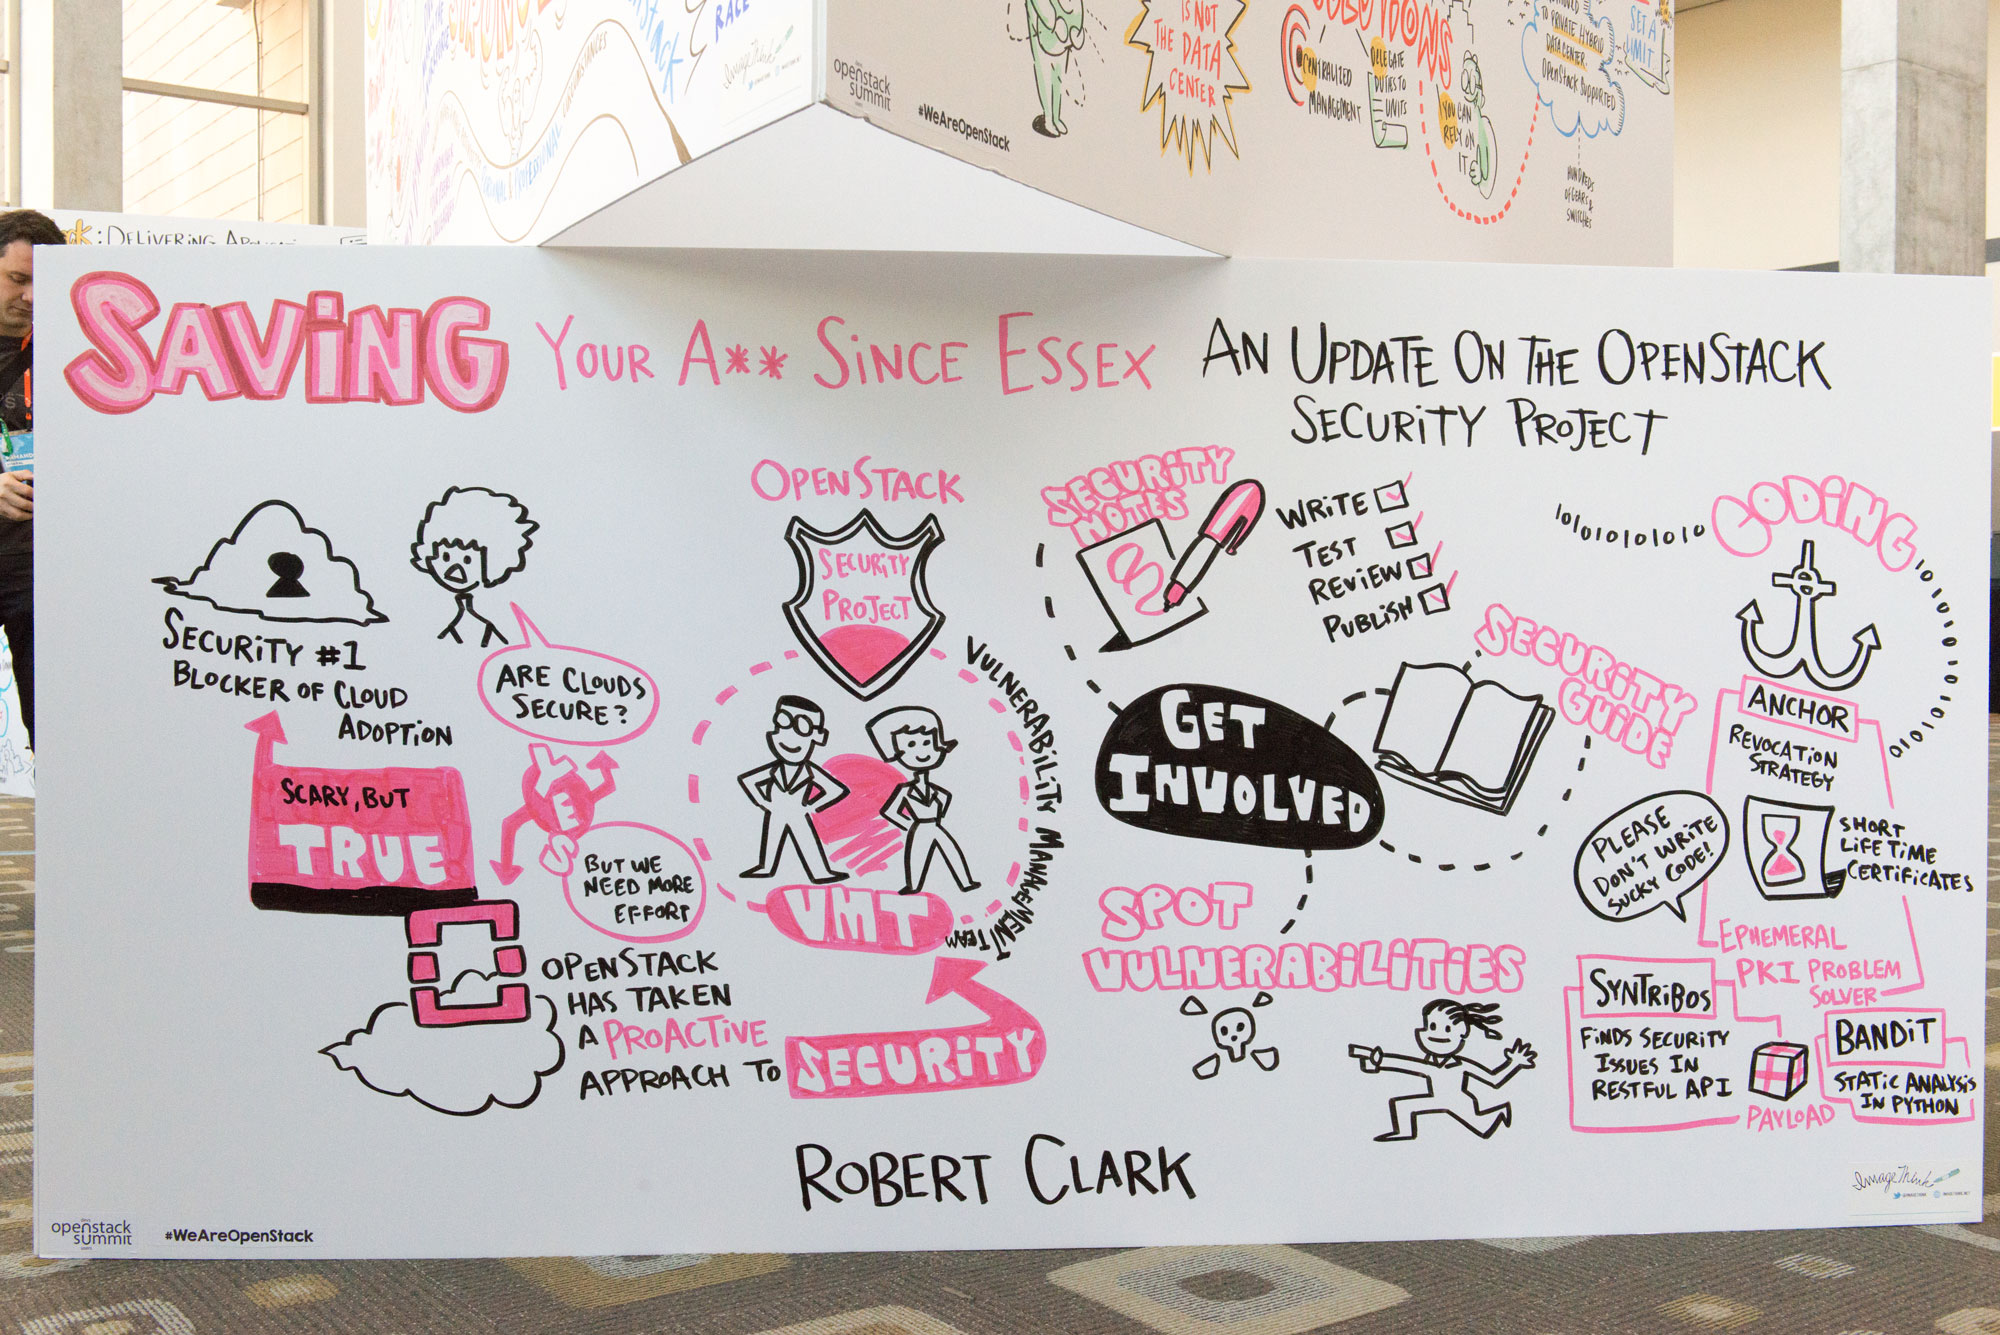 RACE
ImageThink
openstack
summit
#WeAreOpenStack
IS NOT
THE DATA
CENTER
SOLUTIONS
CENTRALIZED
MANAGEMENT
DELEGATE
DUTIES TO
UNITS
YOU CAN
RELY ON
IT
TO PRIVATE HYBRID
DATA CENTER.
OPENSTACK SUPPORTED
HUNDREDS
OF GEARS &
SWITCHES
SET A
LIMIT
PERSONAL & PROFESSIONAL CIRCUMSTANCES
: DELIVERING
SAVING YOUR A** SINCE ESSEX
AN UPDATE ON THE OPENSTACK
SECURITY PROJECT
SECURITY #1
BLOCKER OF CLOUD
ADOPTION
ARE CLOUDS
SECURE?
SCARY, BUT
TRUE!
YES
BUT WE
NEED MORE
EFFORT
OPENSTACK
HAS TAKEN
A PROACTIVE
APPROACH TO
SECURITY
OPENSTACK
SECURITY
PROJECT
VULNERABILITY MANAGEMENT TEAM
VMT
SECURITY
NOTES
WRITE
TEST
REVIEW
PUBLISH
GET
INVOLVED
SECURITY
GUIDE
SPOT
VULNERABILITIES
CODING
1010101010
ANCHOR
REVOCATION
STRATEGY
SHORT
LIFE TIME
CERTIFICATES
PLEASE
DON'T WRITE
SUCKY CODE!
EPHEMERAL
PKI PROBLEM
SOLVER
SYNTRIBOS
FINDS SECURITY
ISSUES IN
RESTFUL API
PAYLOAD
BANDIT
STATIC ANALYSIS
IN PYTHON
ROBERT CLARK
openstack
summit
#WeAreOpenStack
ImageThink
@IMAGETHINK IMAGETHINK.NET